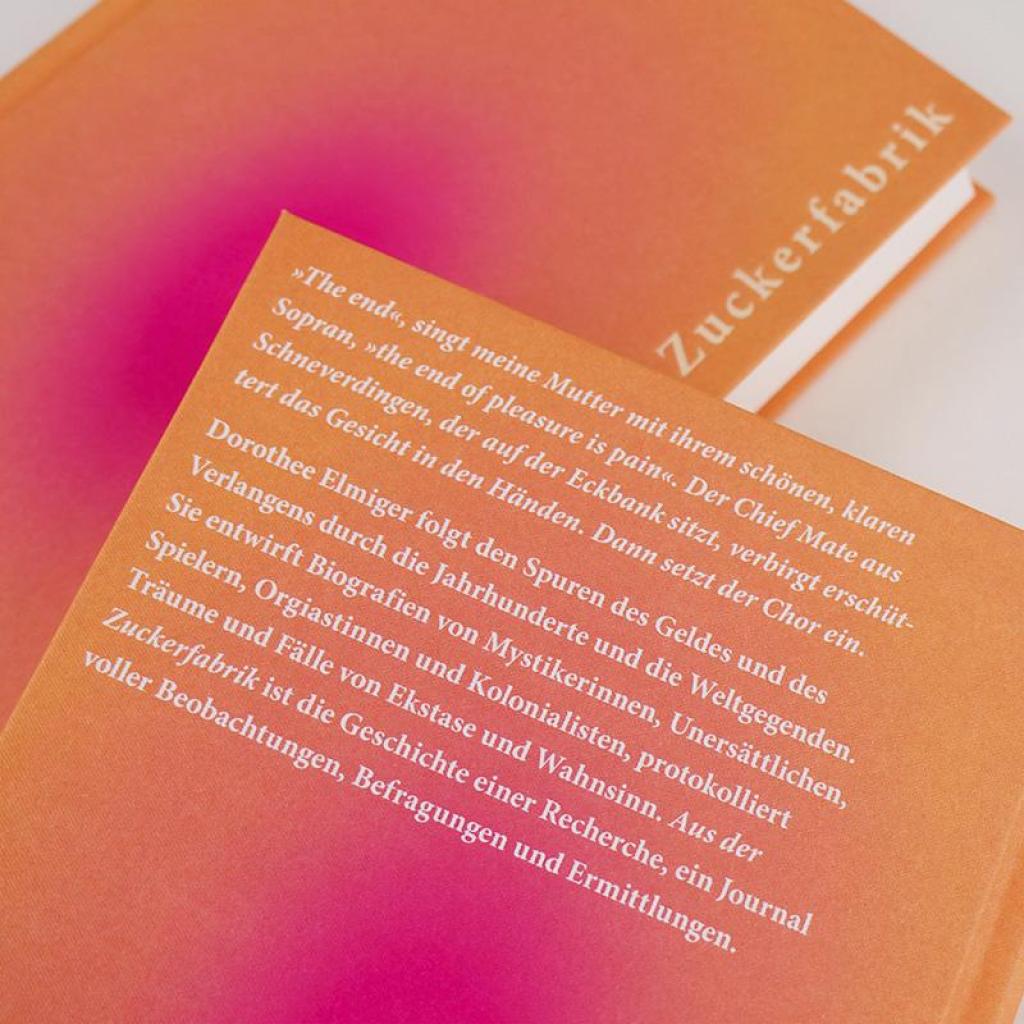 Zuckerfabrik
»The end«, singt meine Mutter mit ihrem schönen, klaren
Sopran, »the end of pleasure is pain«. Der Chief Mate aus
Schneverdingen, der auf der Eckbank sitzt, verbirgt erschüt-
tert das Gesicht in den Händen. Dann setzt der Chor ein.
Dorothee Elmiger folgt den Spuren des Geldes und des
Verlangens durch die Jahrhunderte und die Weltgegenden.
Sie entwirft Biografien von Mystikerinnen, Unersättlichen,
Spielern, Orgiastinnen und Kolonialisten, protokolliert
Träume und Fälle von Ekstase und Wahnsinn. Aus der
Zuckerfabrik ist die Geschichte einer Recherche, ein Journal
voller Beobachtungen, Befragungen und Ermittlungen.